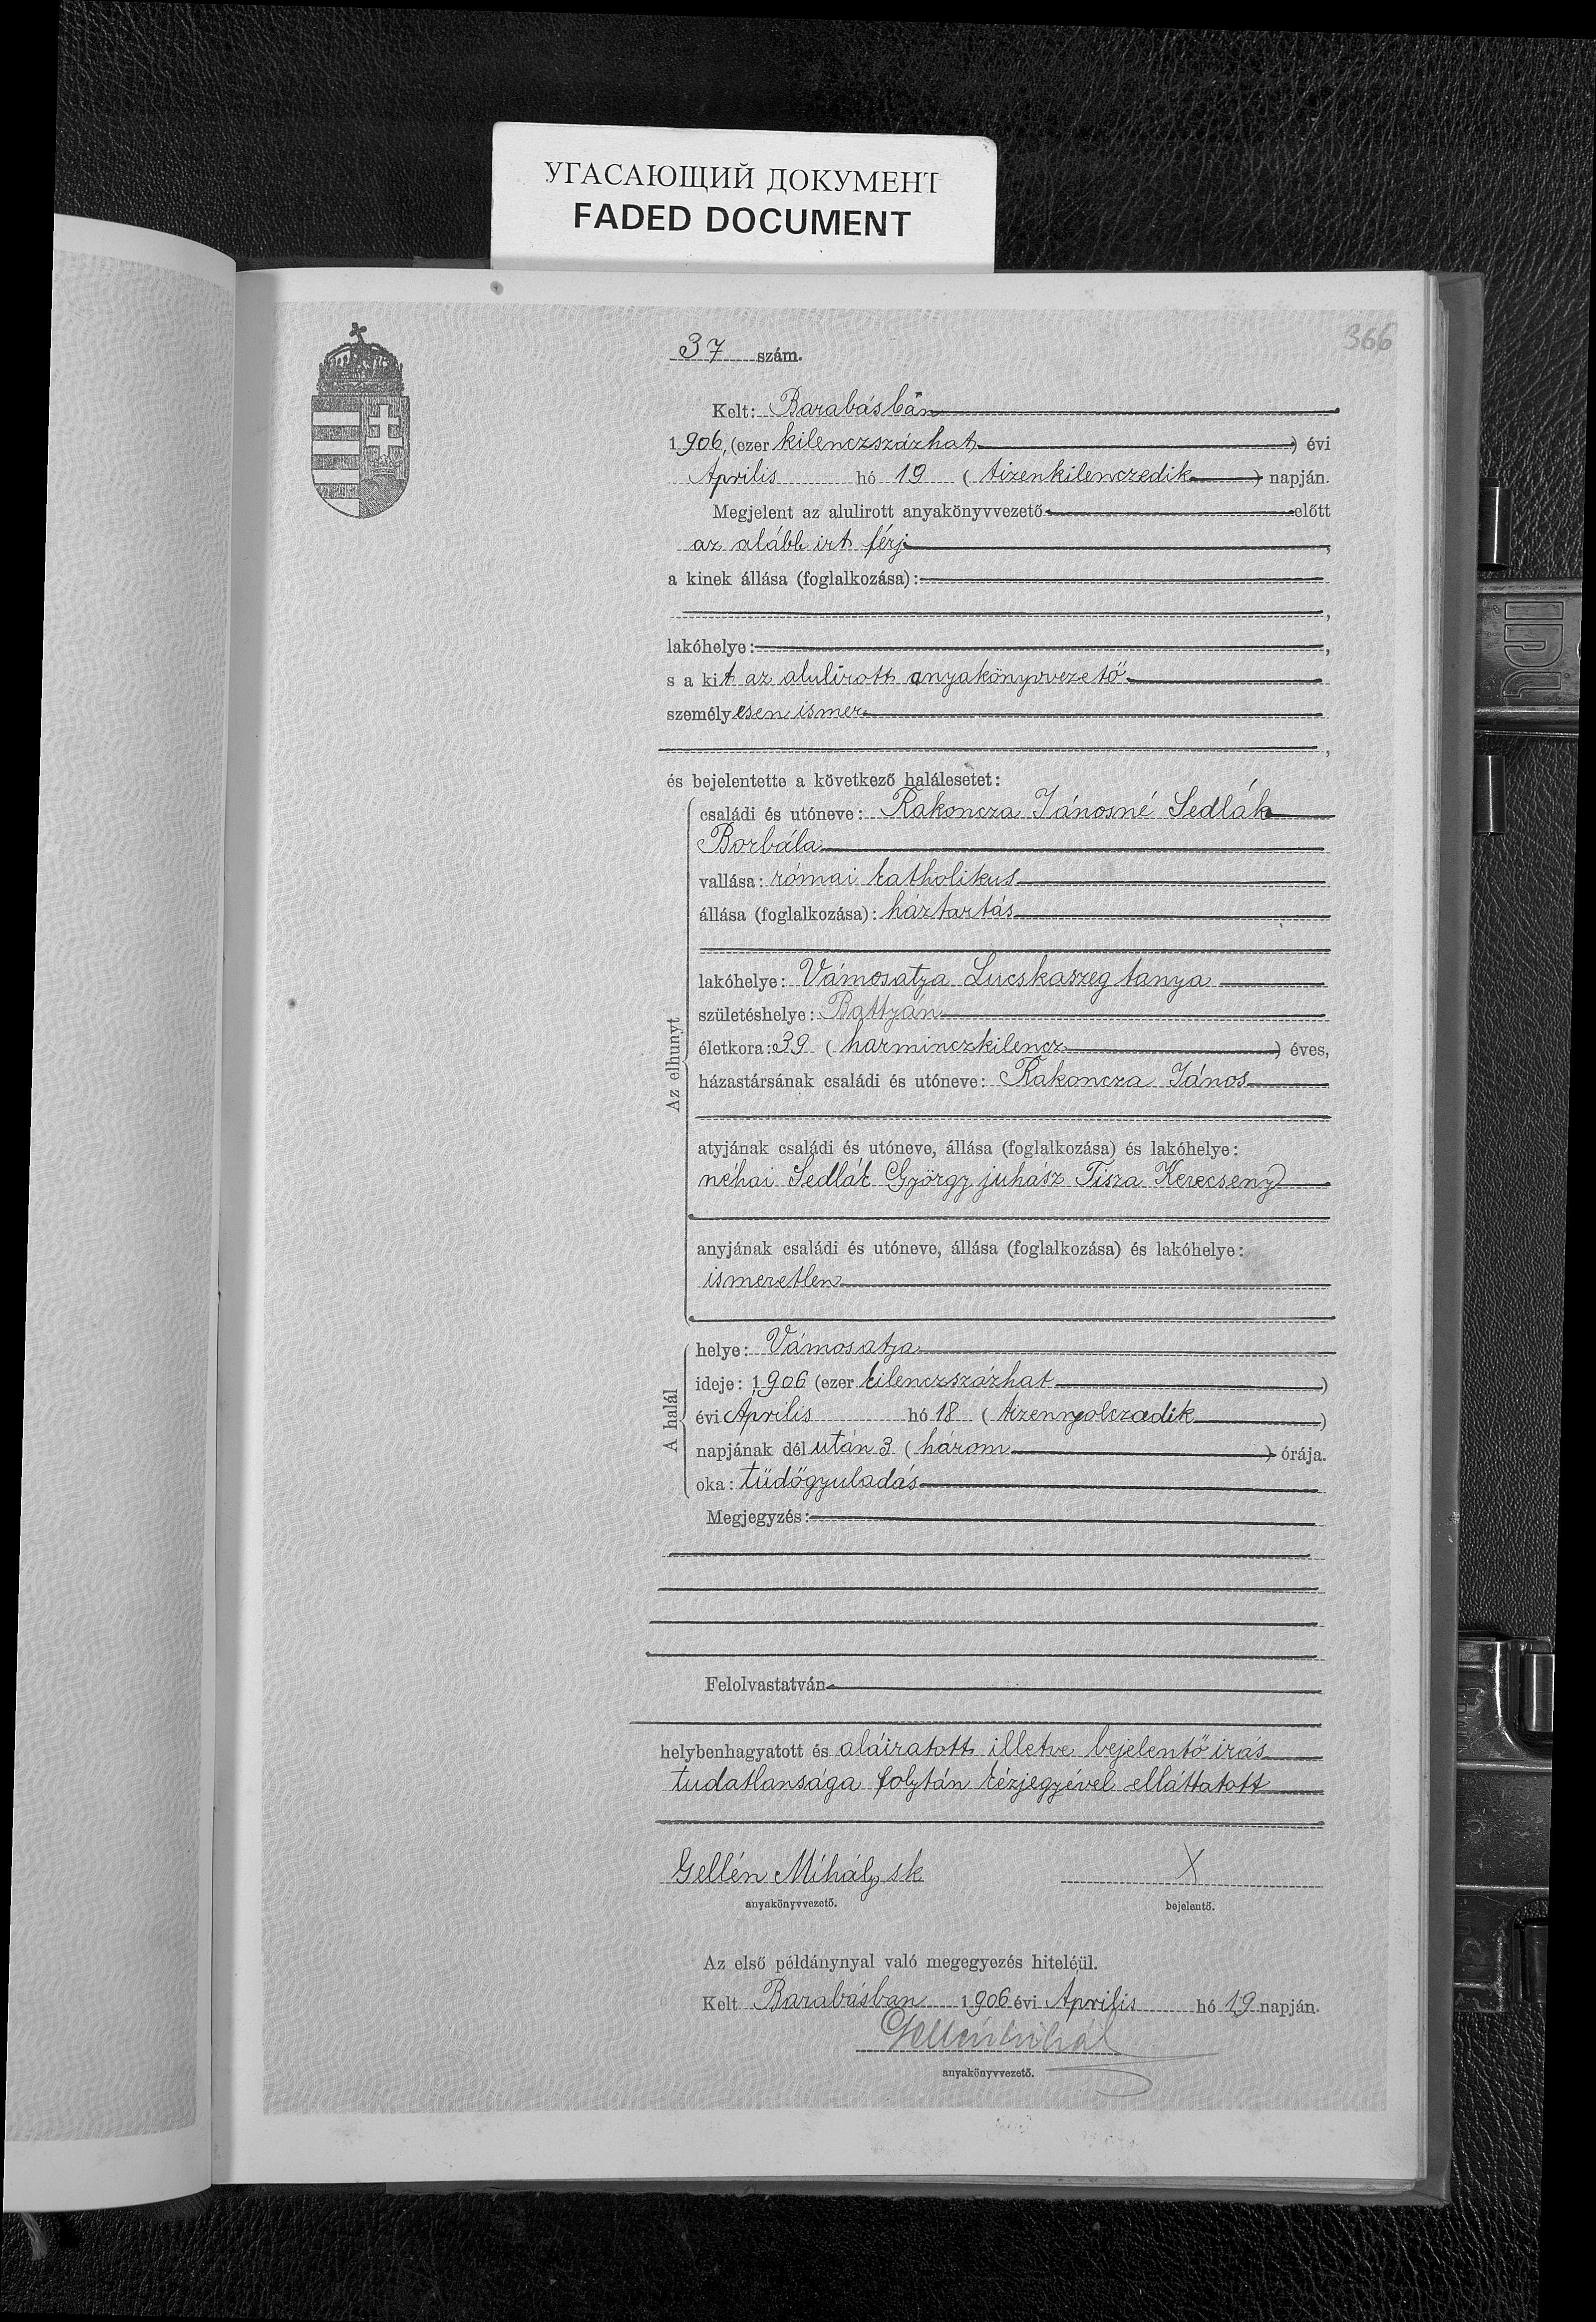 УГАСАЮЩИЙ ДОКУМЕНТ
FADED DOCUMENT
366
37 szám.
Kelt: Barabásbán
1906, (ezer kilenczszázhat) évi
Április hó 19 (tizenkilenczedik) napján.
Megjelent az alulirott anyakönyvvezető előtt
az alább irt férj,
a kinek állása (foglalkozása):
,
lakóhelye: ,
s a kit az alulirott anyakönyvvezető
személyesen ismer
,
és bejelentette a következő halálesetet:
Az elhunyt
családi és utóneve: Rakoncza Jánosné Sedlák
Borbála
vallása: római katholikus
állása (foglalkozása): háztartás
lakóhelye: Vámosatya Lucskaszeg tanya
születéshelye: Battyán
életkora: 39 (harminczkilencz) éves,
házastársának családi és utóneve: Rakoncza János
atyjának családi és utóneve, állása (foglalkozása) és lakóhelye:
néhai Sedlák György juhász Tisza Kerecseny
anyjának családi és utóneve, állása (foglalkozása) és lakóhelye:
ismeretlen
A halál
helye: Vámosatya
ideje: 1906 (ezer kilenczszázhat)
évi Április hó 18 (tizennyolczadik)
napjának dél után 3 (három) órája.
oka: tüdőgyuladás
Megjegyzés:
Felolvastatván
helybenhagyatott és aláiratott illetve bejelentő irás
tudatlansága folytán kézjegyével elláttatott
Gellén Mihály sk X
anyakönyvvezető. bejelentő.
Az első példánynyal való megegyezés hiteléül.
Kelt Barabásban 1906 évi Április hó 19 napján.
Gellén Mihál
anyakönyvvezető.